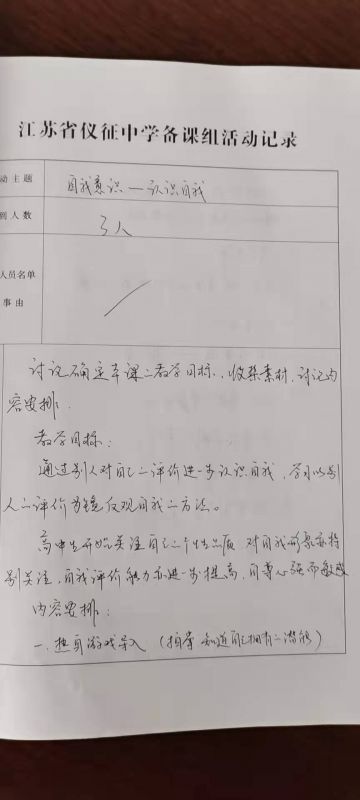 江苏省仪征中学备课组活动记录
动主题 自我意识—认识自我
到人数 3人
人员名单
事由
讨论确定本课二教学目标,收集素材,讨论内
容安排.
教学目标:
通过别人对自己二评价进一步认识自我,学习以别
人二评价为镜反观自我二方法。
高中生开始关注自己二个性品质 对自我形象亦特
别关注,自我评价能力亦进一步提高,自尊心强而敏感
内容安排:
一.热身游戏导入 (拍掌 知道自己拥有二潜能)